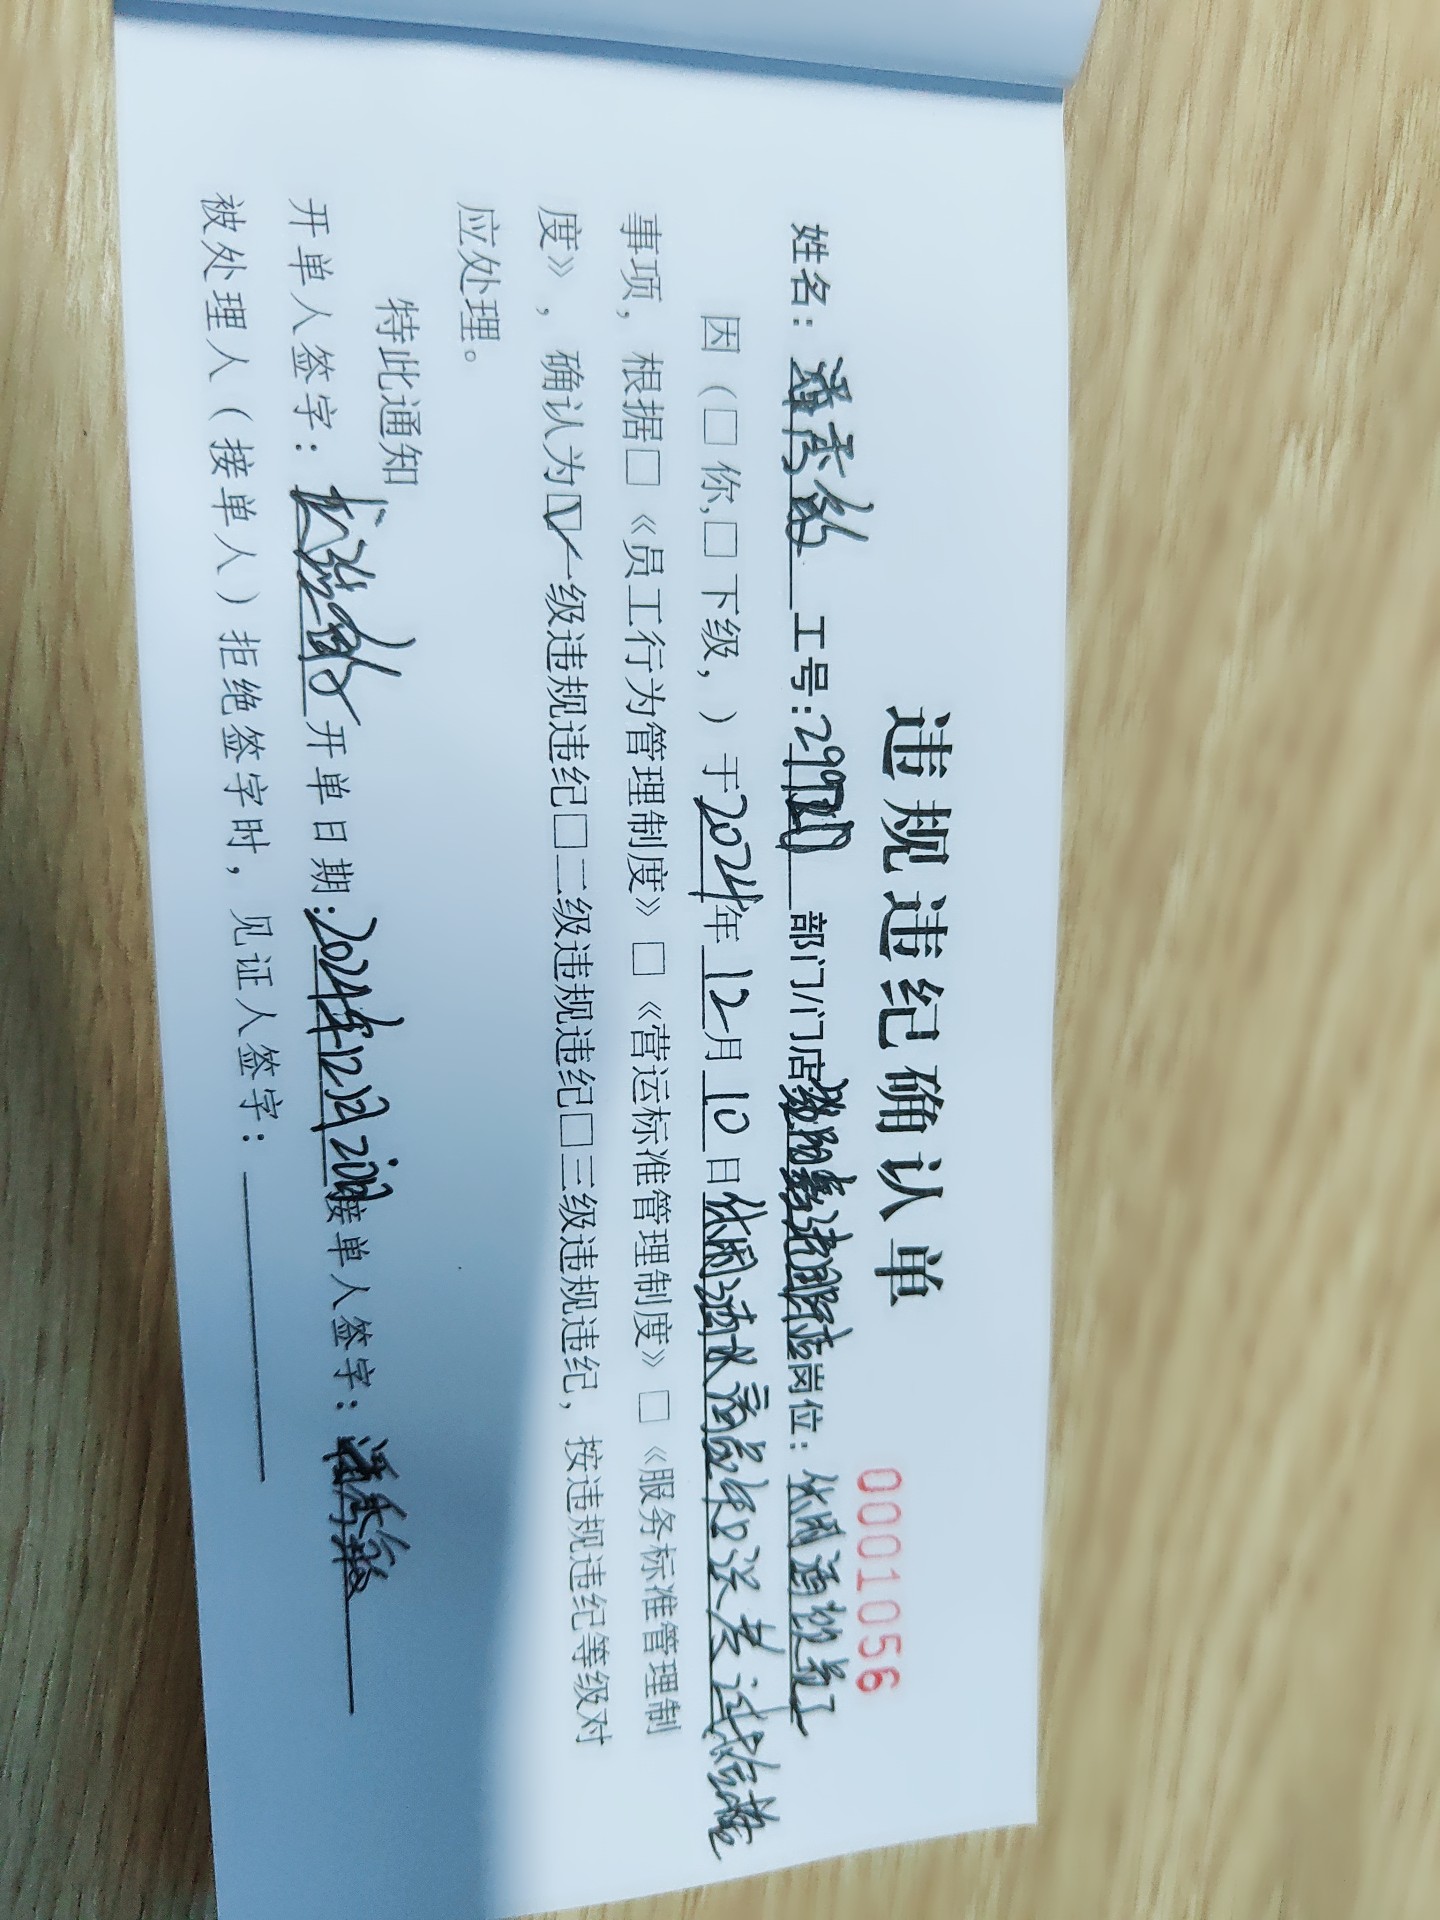 违规违纪确认单
0001056
姓名：潘秀 工号： 部门/门店： 岗位：休闲酒饮员工
因（□ 你,□ 下级，）于2024年12月10日休闲酒水
事项，根据□《员工行为管理制度》□《营运标准管理制度》□《服务标准管理制
度》，确认为☑一级违规违纪□二级违规违纪□三级违规违纪，按违规违纪等级对
应处理。
特此通知
开单人签字： 开单日期：2024年12月20日接单人签字：潘秀
被处理人（接单人）拒绝签字时，见证人签字：